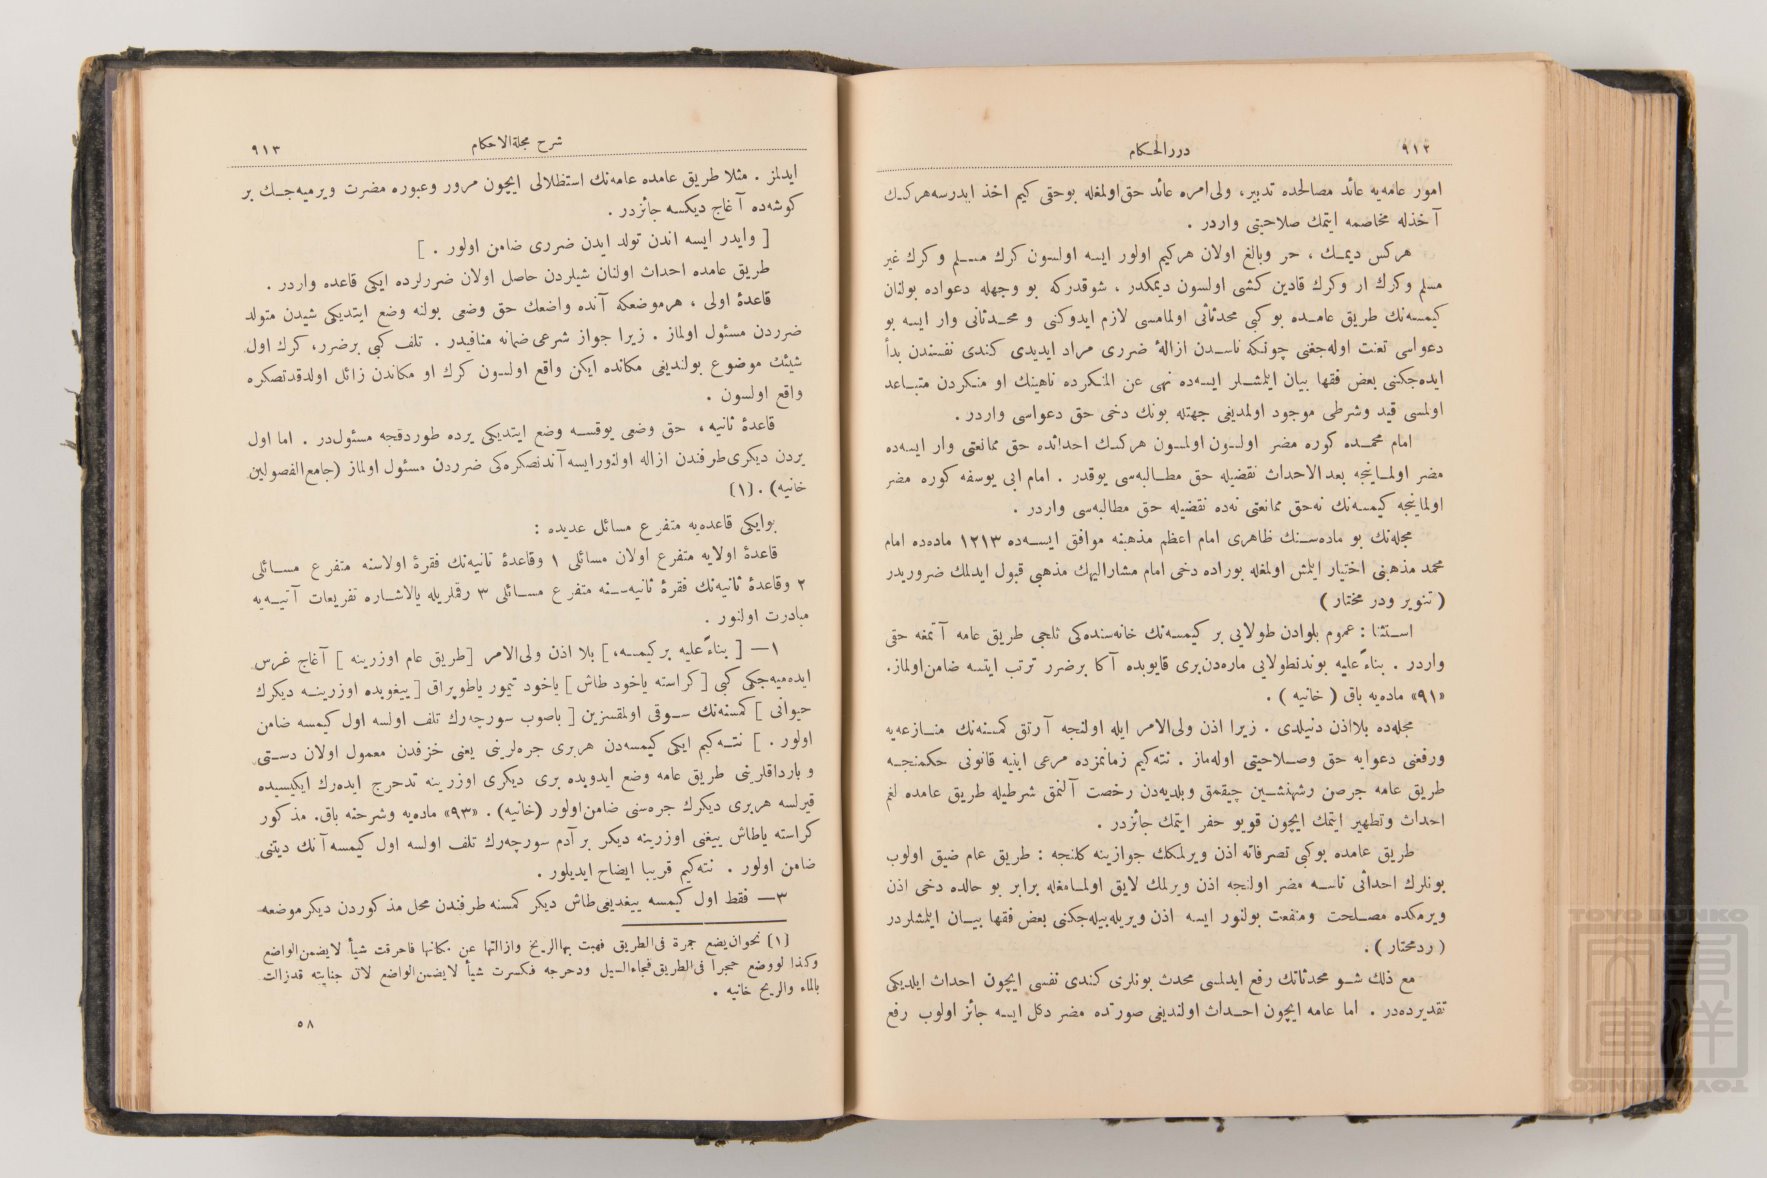 ٩١٢
دررالحكام
امور عامه‌يه عائد مصالحده تدبير، ولى‌امره عائد حق‌اولمغله بوحقى كيم اخذ ايدرسه‌هركـك
آخذله مخاصمه ايتمك صلاحيتى واردر .
هركس ديمـك ، حر وبالغ اولان هركيم اولور ايسه اولسون كرك مسـلم و كرك غير
مسلم وكرك ار وكرك قادين كشى اولسون ديمكدر ، شوقدركه بو وجهله دعواده بولنان
كيمسه‌نك طريق عامـده بوكبى محدثاتى اولمامسى لازم ايدوكنى و محـدثاتى وار ايسه بو
دعواسى تعنت اوله‌جغنى چونكه ناسـدن ازالهٔ ضررى مراد ايديدى كندى نفسندن بدأ
ايده‌جكنى بعض فقها بيان ايلمشـلر ايسه‌ده نهى عن المنكرده ناهينك او منكردن متبـاعد
اولمسى قيد وشرطى موجود اولمديغى جهتله بونك دخى حق دعواسى واردر .
امام محمـده كوره مضر اولسون اولمسون هركسك احداثده حق ممانعتى وار ايسه‌ده
مضر اولمـاينجه بعدالاحداث نقضيله حق مطـالبه‌سى يوقدر . امام ابى يوسفه كوره مضر
اولماينجه كيمسه‌نك نه‌حق ممانعتى نه‌ده نقضيله حق مطالبه‌سى واردر .
مجله‌نك بو ماده‌سـنك ظاهرى امام اعظم مذهبنه موافق ايسـه‌ده ١٢١٣ ماده‌ده امام
محمد مذهبنى اختيار ايلمش اولمغله بوراده دخى امام مشاراليهك مذهبى قبول ايدلمك ضروريدر
( تنوير ودر مختار )
اسـتثنا : عموم بلوادن طولايى بر كيمسه‌نك خانه‌سنده‌كى ثلجى طريق عامه آتمغه حقى
واردر . بناءً عليه بوندنطولايى ماره‌دن‌برى قايوبده آكا برضرر ترتب ايتسه ضامن‌اولماز.
«٩١» ماده‌يه باق ( خانيه ) .
مجله‌ده بلااذن دنيلدى . زيرا اذن ولى‌الامر ايله اولنجه آرتق كمسنه‌نك منـازعه‌يه
ورفعنى دعوايه حق وصـلاحيتى اوله‌ماز . نته‌كيم زمانمزده مرعى ابنيه قانونى حكمنجـه
طريق عامه جرصن رشهنشـين چيقمق وبلديه‌دن رخصت آلنمق شرطيله طريق عامده لغم
احداث وتطهير ايتمك ايچون قويو حفر ايتمك جائزدر .
طريق عامده بوكبى تصرفاته اذن ويرلمكك جوازينه كلنجه : طريق عام ضيق اولوب
بونلرك احداثى ناسـه مضر اولنجه اذن ويرلمك لايق اولمـامغله برابر بو حالده دخى اذن
ويرمكده مصـلحت ومنفعت بولنور ايسه اذن ويريله‌بيله‌جكنى بعض فقها بيـان ايلمشلردر
( ردمختار ) .
مع ذلك شـو محدثاتك رفع ايدلمسى محدث بونلرى كندى نفسى ايچون احداث ايلديكى
تقديرده‌در . اما عامه ايچون احـداث اولنديغى صورتده مضر دكل ايسه جائز اولوب رفع
شرح مجلةالاحكام
٩١٣
ايدلمز . مثلا طريق عامده عامه‌نك استظلالى ايچون مرور وعبوره مضرت ويرميه‌جـك بر
كوشه‌ده آغاج ديكسه جائزدر .
[ وايدر ايسه اندن تولد ايدن ضررى ضامن اولور . ]
طريق عامده احداث اولنان شيلردن حاصل اولان ضررلرده ايكى قاعده واردر .
قاعدهٔ اولى ، هرموضعكه آنده واضعك حق وضعى بولنه وضع ايتديكى شيدن متولد
ضرردن مسئول اولماز . زيرا جواز شرعى ضمانه منافيدر . تلف كبى برضرر، كرك اول
شيئك موضوع بولنديغى مكانده ايكن واقع اولسون كرك او مكاندن زائل اولدقدنصكره
واقع اولسون .
قاعدهٔ ثانيه، حق وضعى يوقسـه وضع ايتديكى يرده طوردقجه مسئول‌در . اما اول
يردن ديكرى‌طرفندن ازاله اولنورايسه آندنصكره‌كى ضرردن مسئول اولماز (جامع‌الفصولين
خانيه) . (١)
بوايكى قاعده‌يه متفرع مسائل عديده :
قاعدهٔ اولايه متفرع اولان مسائلى ١ وقاعدهٔ ثانيه‌نك فقرهٔ اولاسنه متفرع مسـائلى
٢ وقاعدهٔ ثانيه‌نك فقرهٔ ثانيه‌سـنه متفرع مسـائلى ٣ رقملريله يالاشـاره تفريعات آتيـه‌يه
مبادرت اولنور .
١— [ بناءً عليه بركيمسـه، ] بلا اذن ولى‌الامر [طريق عام اوزرينه ] آغاج غرس
ايده‌ميه‌جكى كبى [كراسته ياخود طاش ] ياخود تيمور ياطوپراق [ ييغوبده اوزرينـه ديكرك
حيوانى ] كمسنه‌نك سـوقى اولمقسزين [ باصوب سورچه‌رك تلف اولسه اول كيمسه ضامن
اولور . ] نتـه‌كيم ايكى كيمسه‌دن هربرى جره‌لرينى يعنى خزفدن معمول اولان دسـتى
و بارداقلرينى طريق عامه وضع ايدوبده برى ديكرى اوزرينه تدحرج ايده‌رك ايكيسيده
قيرلسه هربرى ديكرك جره‌سنى ضامن‌اولور (خانيه) . «٩٣» ماده‌يه وشرحنه باق. مذكور
كراسته ياطاش ييغنى اوزرينه ديكر بر آدم سورچه‌رك تلف اولسه اول كيمسه آنك ديتنى
ضامن اولور . نته‌كيم قريبا ايضاح ايديلور .
٣— فقط اول كيمسه ييغديغى‌طاش ديكر كمسنه طرفندن محل مذكوردن ديكرموضعه
(١) نحوان‌يضع جمرة فى‌الطريق فهبت بهاالريح وازالتها عن مكانها فاحرقت شيأ لايضمن‌الواضع
وكذا لووضع حجرا فى‌الطريق‌فجاءالسيل ودحرجه فكسرت شيأ لايضمن‌الواضع لان جنايته قدزالت
بالماء والريح خانيه .
٥٨
TOYO BUNKO
東洋文庫
TOYO BUNKO